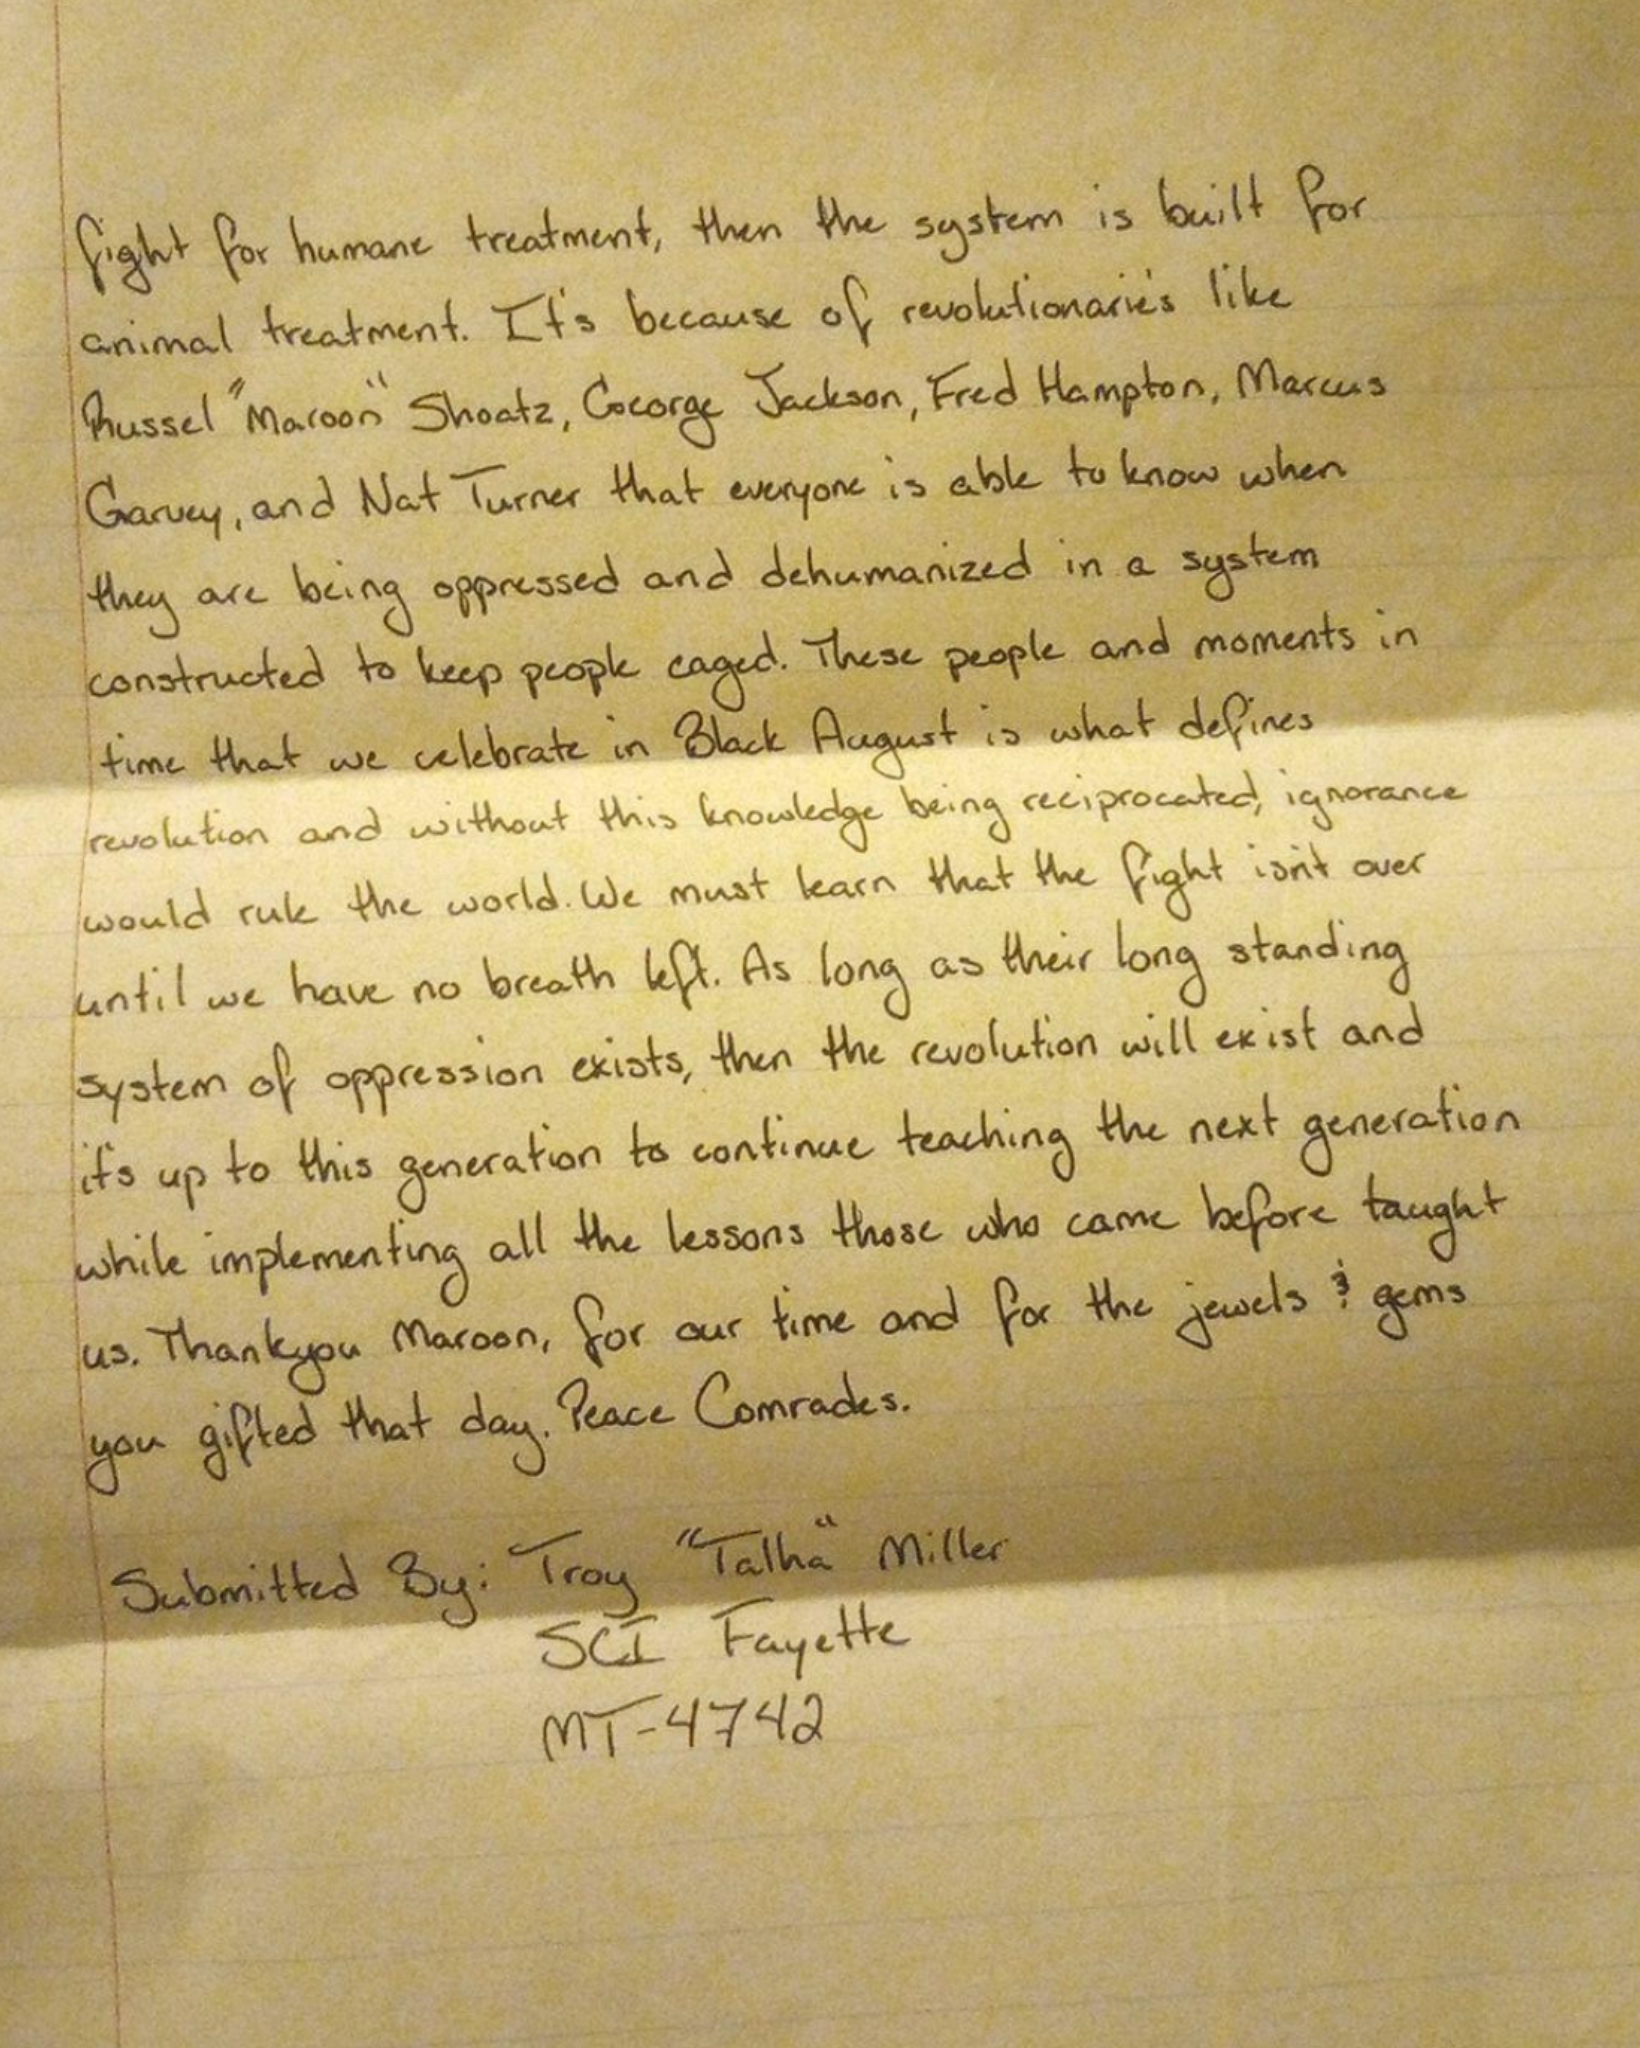 fight for humane treatment, then the system is built for
animal treatment. It's because of revolutionarie's like
Russel "Maroon" Shoatz, George Jackson, Fred Hampton, Marcus
Garvey, and Nat Turner that everyone is able to know when
they are being oppressed and dehumanized in a system
constructed to keep people caged. These people and moments in
time that we celebrate in Black August is what defines
revolution and without this knowledge being reciprocated, ignorance
would rule the world. We must learn that the fight isn't over
until we have no breath left. As long as their long standing
system of oppression exists, then the revolution will exist and
it's up to this generation to continue teaching the next generation
while implementing all the lessons those who came before taught
us. Thankyou Maroon, for our time and for the jewels & gems
you gifted that day. Peace Comrades.
Submitted By: Troy "Talha" Miller
SCI Fayette
MT-4742